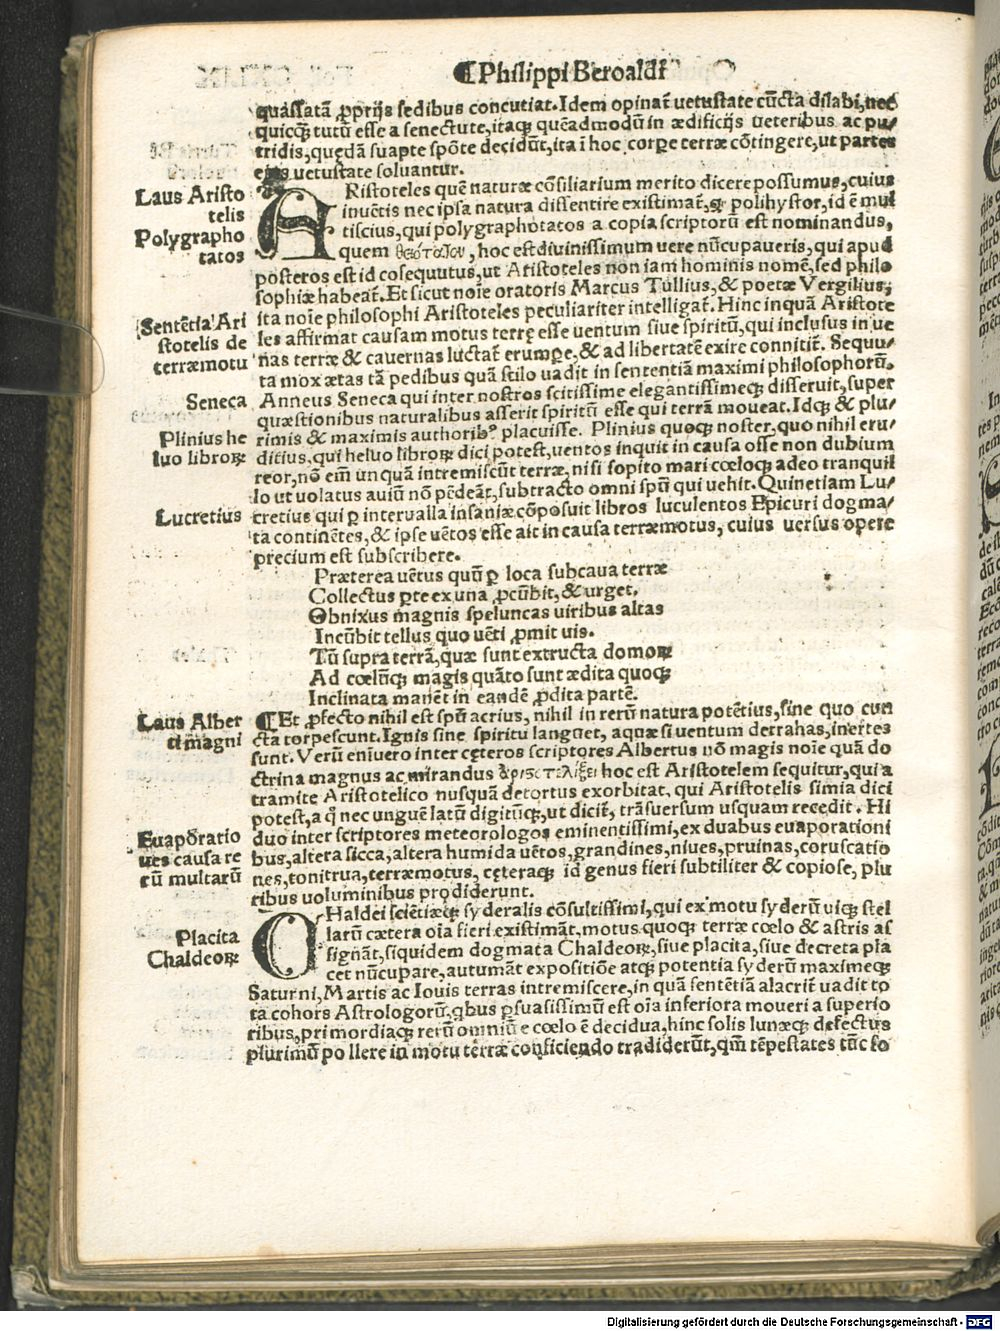 ¶Philippi Beroaldi
quassatā ꝓprijs sedibus concutiat. Idem opinat̄ uetustate cūcta dilabi, nec
quicq̃ tutū esse a senectute, itaq; quēadmodū in ædificijs ueteribus ac pu/
tridis, quędā suapte spōte decidūt, ita ī hoc corꝑe terræ cōtingere, ut partes
eius uetustate soluantur.
Laus Aristo
telis
Polygrapho
tatos
ARistoteles quē naturæ cōsiliarium merito dicere possumus, cuius
inuētis nec ipsa natura dissentire existimat̄, polihystor, id ē mul
tiscius, qui polygraphotatos a copia scriptorū est nominandus,
quem θεότατου, hoc est diuinissimum uere nūcupaueris, qui apud
posteros est id cosequutus, ut Aristoteles non iam hominis nomē, sed philo
sophiæ habeat̄. Et sicut noīe oratoris Marcus Tullius, & poetæ Vergilius,
ita noīe philosophi Aristoteles peculiariter intelligat̄. Hinc inquā Aristote
Sentētia Ari
stotelis de
terræmotu
les affirmat causam motus terrę esse uentum siue spiritū, qui inclusus in ue
nas terræ & cauernas luctat̄ erumꝑe, & ad libertatē exire connitit̄. Sequu/
ta mox ætas tā pedibus quā stilo uadit in sententiā maximi philosophorū.
Seneca
Anneus Seneca qui inter nostros scitissime elegantissimeq; disseruit, super
quæstionibus naturalibus asserit spiritū esse qui terrā moueat. Idq; & plu/
Plinius he
luo libroꝝ
rimis & maximis authoribꝰ placuisse. Plinius quoq; noster, quo nihil eru/
ditius, qui heluo libroꝝ dici potest, uentos inquit in causa osse non dubium
reor, nō em̄ unquā intremiscūt terræ, nisi sopito mari cœloq; adeo tranquil
lo ut uolatus auiū nō pēdeāt, subtracto omni spū qui uehit. Quinetiam Lu/
Lucretius
cretius qui ꝑ interualla insaniæ cōposuit libros luculentos Epicuri dogma/
ta continētes, & ipse uētos esse ait in causa terræmotus, cuius uersus opere
precium est subscribere.
Præterea uētus quū ꝑ loca subcaua terræ
Collectus ꝑte ex una ꝓcūbit, & urget,
Obnixus magnis speluncas uiribus altas
Incūbit tellus quo uēti ꝓmit uis.
Tū supra terrā, quæ sunt extructa domoꝝ
Ad cœlūq; magis quāto sunt ædita quoq;
Inclinata manēt in eandē ꝓdita partē.
Laus Alber
ti magni
¶Et ꝓfecto nihil est spū acrius, nihil in rerū natura potētius, sine quo cun
cta torpescunt. Ignis sine spiritu languet, aquæ si uentum detrahas, inertes
sunt. Verū eniuero inter cęteros scriptores Albertus nō magis noīe quā do
ctrina magnus ac mirandus ἀριστοτελίζει hoc est Aristotelem sequitur, qui a
tramite Aristotelico nusquā detortus exorbitat, qui Aristotelis simia dici
potest, a q̊ nec unguē latū digitūq;, ut dicit̄, trāsuersum usquam recedit. Hi
Euapōratio
nes causa re
rū multarū
duo inter scriptores meteorologos eminentissimi, ex duabus euaporationi
bus, altera sicca, altera humida uētos, grandines, niues, pruinas, coruscatio
nes, tonitrua, terræmotus, cęteraq; id genus fieri subtiliter & copiose, plu
ribus uoluminibus prodiderunt.
Placita
Chaldeoꝝ
CHaldei sciētiæq; syderalis cōsultissimi, qui ex motu syderū uiq; stel
larū cætera oīa fieri existimāt, motus quoq; terræ cœlo & astris as
signāt, siquidem dogmata Chaldeoꝝ, siue placita, siue decreta pla
cet nūcupare, autumāt expositiōe atq; potentia syderū maximeq;
Saturni, Martis ac Iouis terras intremiscere, in quā sentētiā alacrit̄ uadit to
ta cohors Astrologorū, qbus ꝑsuasissimū est oīa inferiora moueri a superio
ribus, primordiaq; rerū omniū e cœlo ē decidua, hinc solis lunæq; defectus
plurimū pollere in motu terræ conficiendo tradiderūt, qm̄ tēpestates tūc so
Digitalisierung gefördert durch die Deutsche Forschungsgemeinschaft - DFG